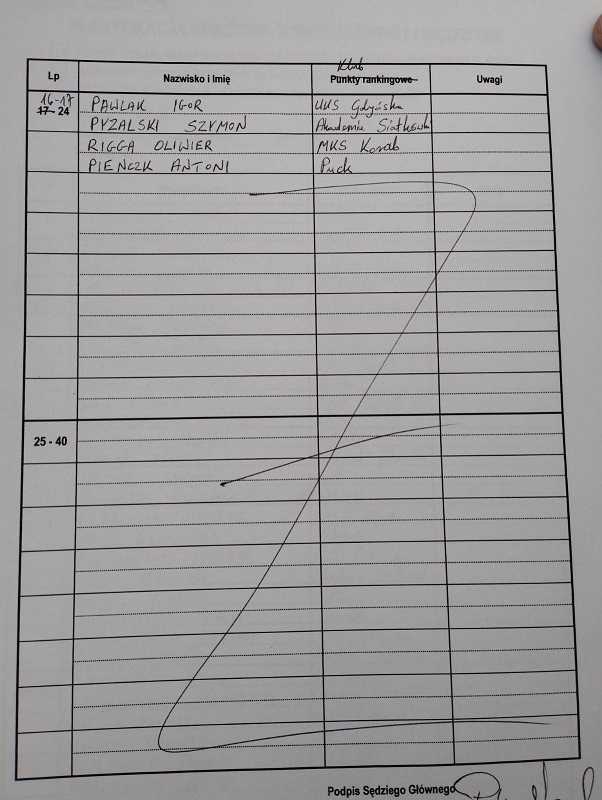 Klub
Lp Nazwisko i Imię Punkty rankingowe Uwagi
16-17
17- 24 PAWLAK IGOR UKS Gdyńska
PYZALSKI SZYMON Akademia Siatkówki
RIGGA OLIWIER MKS Korab
PIEŃCZK ANTONI Puck
25 - 40
Podpis Sędziego Głównego